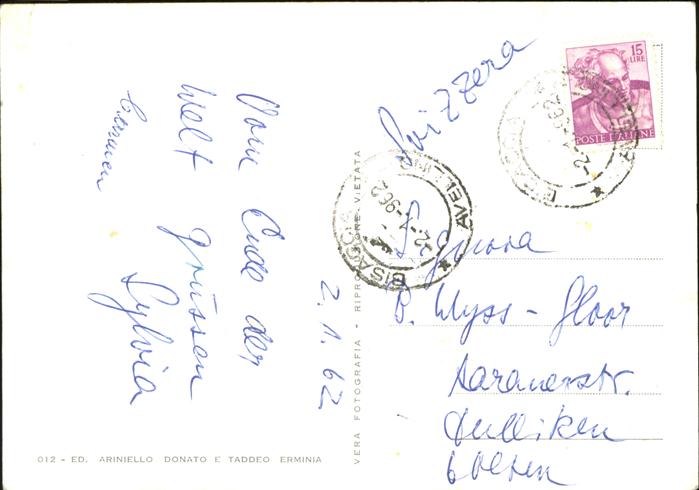 Vom Ende der
Welt grüssen
Sylvia
2.1.62
Svizzera
Signora
B. Wyss-Gloor
Aarauerstr.
Dulliken
b/Olten
15
LIRE
POSTE ITALIANE
BISACCIA
AVELLINO
2-1-962
BISACCIA
AVELLINO
2-1-962
VERA FOTOGRAFIA - RIPRODUZIONE VIETATA
012 - ED. ARINIELLO DONATO E TADDEO ERMINIA